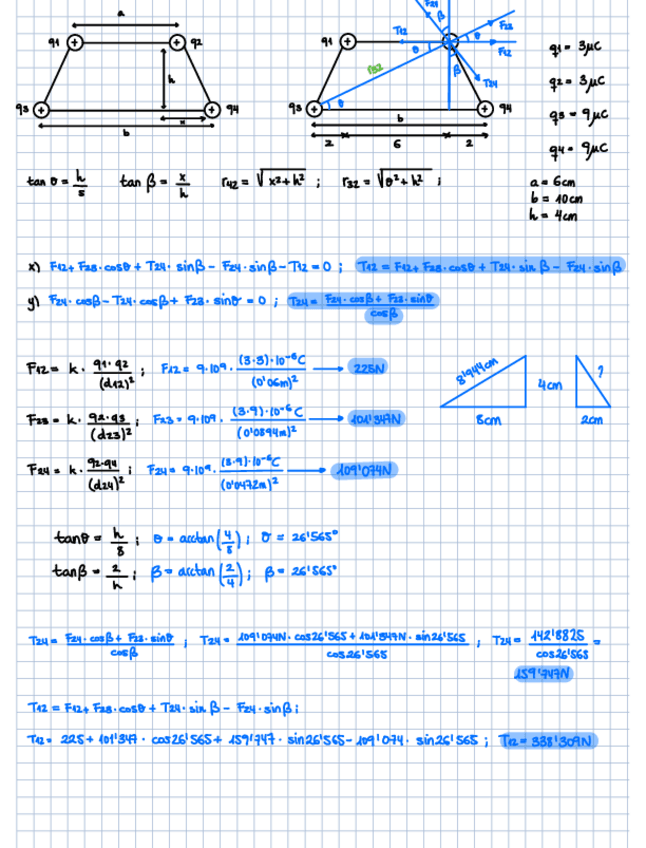 a
q1
q2
h
q3
q4
x
b
F24
β
F23
T12
θ
F12
q1
θ
r32
β
T24
q3
θ
q4
b
2 6 2
q1 = 3μC
q2 = 3μC
q3 = 9μC
q4 = 9μC
a = 6cm
b = 10cm
h = 4cm
tan θ = h/8 tan β = x/h r42 = √x²+h² ; r32 = √8²+h² ;
x) F12 + F23 · cosθ + T24 · sinβ - F24 · sinβ - T12 = 0 ; T12 = F12 + F23 · cosθ + T24 · sin β - F24 · sinβ
y) F24 · cosβ - T24 · cosβ + F23 · sinθ = 0 ; T24 = F24 · cosβ + F23 · sinθ / cosβ
F12 = k · q1 · q2 / (d12)² ; F12 = 9·10⁹ · (3·3)·10⁻⁶C / (0'06m)² → 225N
8'944cm
4cm
8cm
?
2cm
F23 = k · q2 · q3 / (d23)² ; F23 = 9·10⁹ · (3·9)·10⁻⁶C / (0'0894m)² → 101'347N
F24 = k · q2 · q4 / (d24)² ; F24 = 9·10⁹ · (3·9)·10⁻⁶C / (0'0472m)² → 109'074N
tanθ = h/8 ; θ = arctan(4/8) ; θ = 26'565°
tanβ = 2/h ; β = arctan(2/4) ; β = 26'565°
T24 = F24 · cosβ + F23 · sinθ / cosβ ; T24 = 109'074N · cos26'565 + 101'347N · sin26'565 / cos26'565 ; T24 = 142'8825 / cos26'565 =
159'747N
T12 = F12 + F23 · cosθ + T24 · sin β - F24 · sinβ ;
T12 = 225 + 101'347 · cos26'565 + 159'747 · sin26'565 - 109'074 · sin26'565 ; T12 = 338'309N